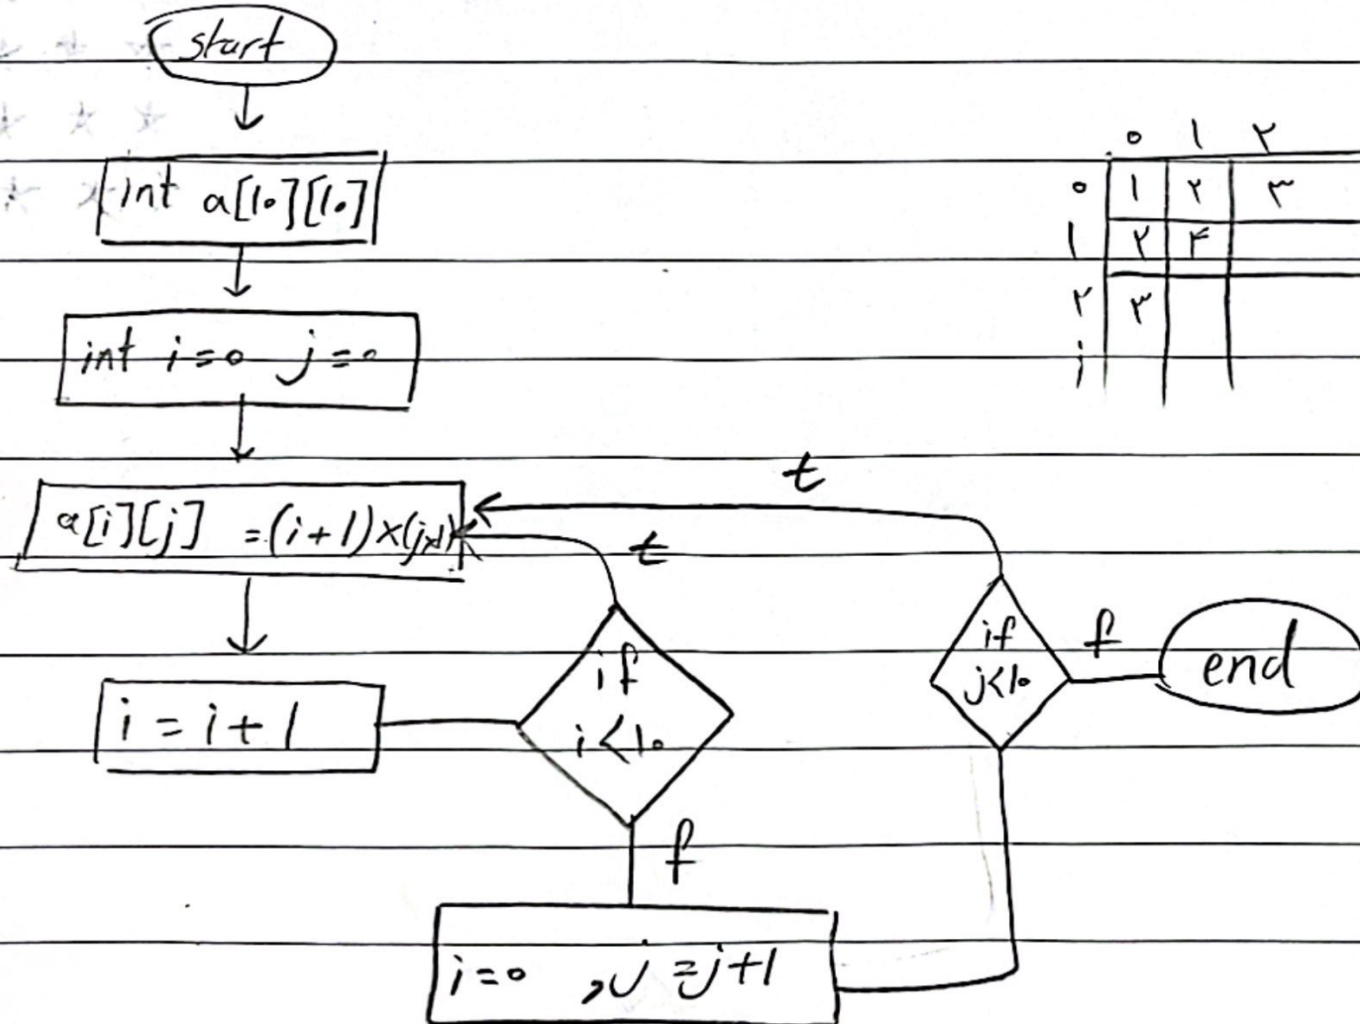 start
int a[۱۰][۱۰]
int i=۰ j=۰
a[i][j] =(i+1)×(j+1)
i = i + 1
if
i<۱۰
t
f
i=۰ , j=j+1
t
if
j<۱۰
f
end
۰ ۱ ۲
۰ ۱ ۲ ۳
۱ ۲ ۴
۲ ۳